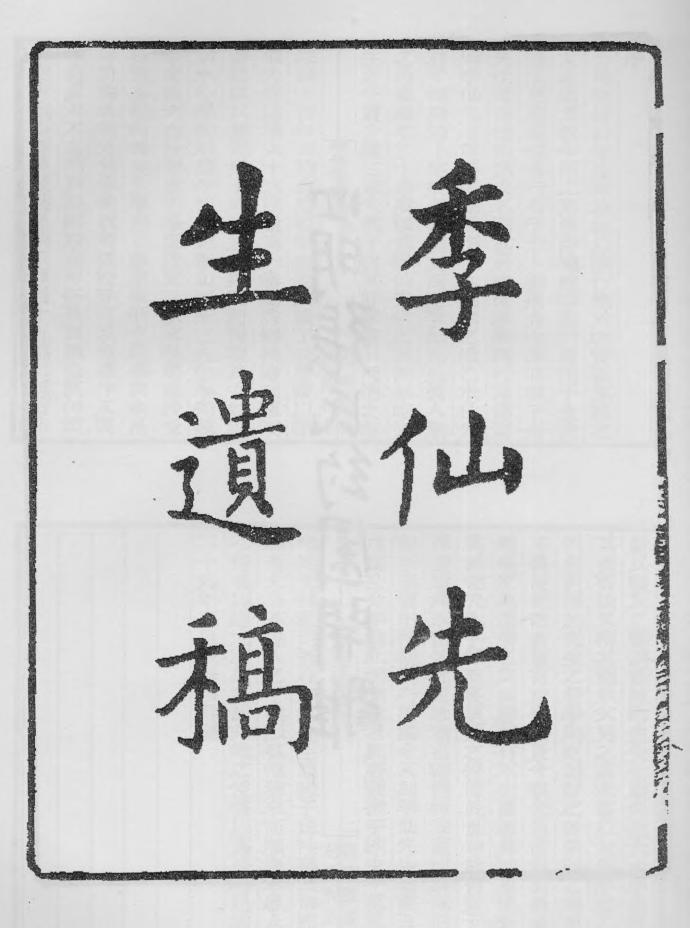 季仙先
生遺稿